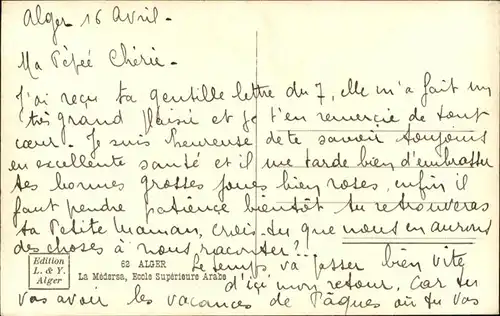 Alger 16 Avril.
Ma Pépée Chérie.
J'ai reçu ta gentille lettre du 7, elle m'a fait un
très grand plaisir et je t'en remercie de tout
cœur. Je suis heureuse de te savoir toujours
en excellente santé et il me tarde bien d'embrasser
tes bonnes grosses joues bien roses, enfin il
faut pendre patience bientôt tu retrouveras
ta Petite Maman, crois-tu que nous en aurons
des choses à nous raconter?..
Le temps va passer bien vite
d'ici mon retour, car tu
vas avoir les vacances de Pâques où tu vas
Edition
L. & Y.
Alger
62 ALGER
La Médersa, Ecole Supérieure Arabe